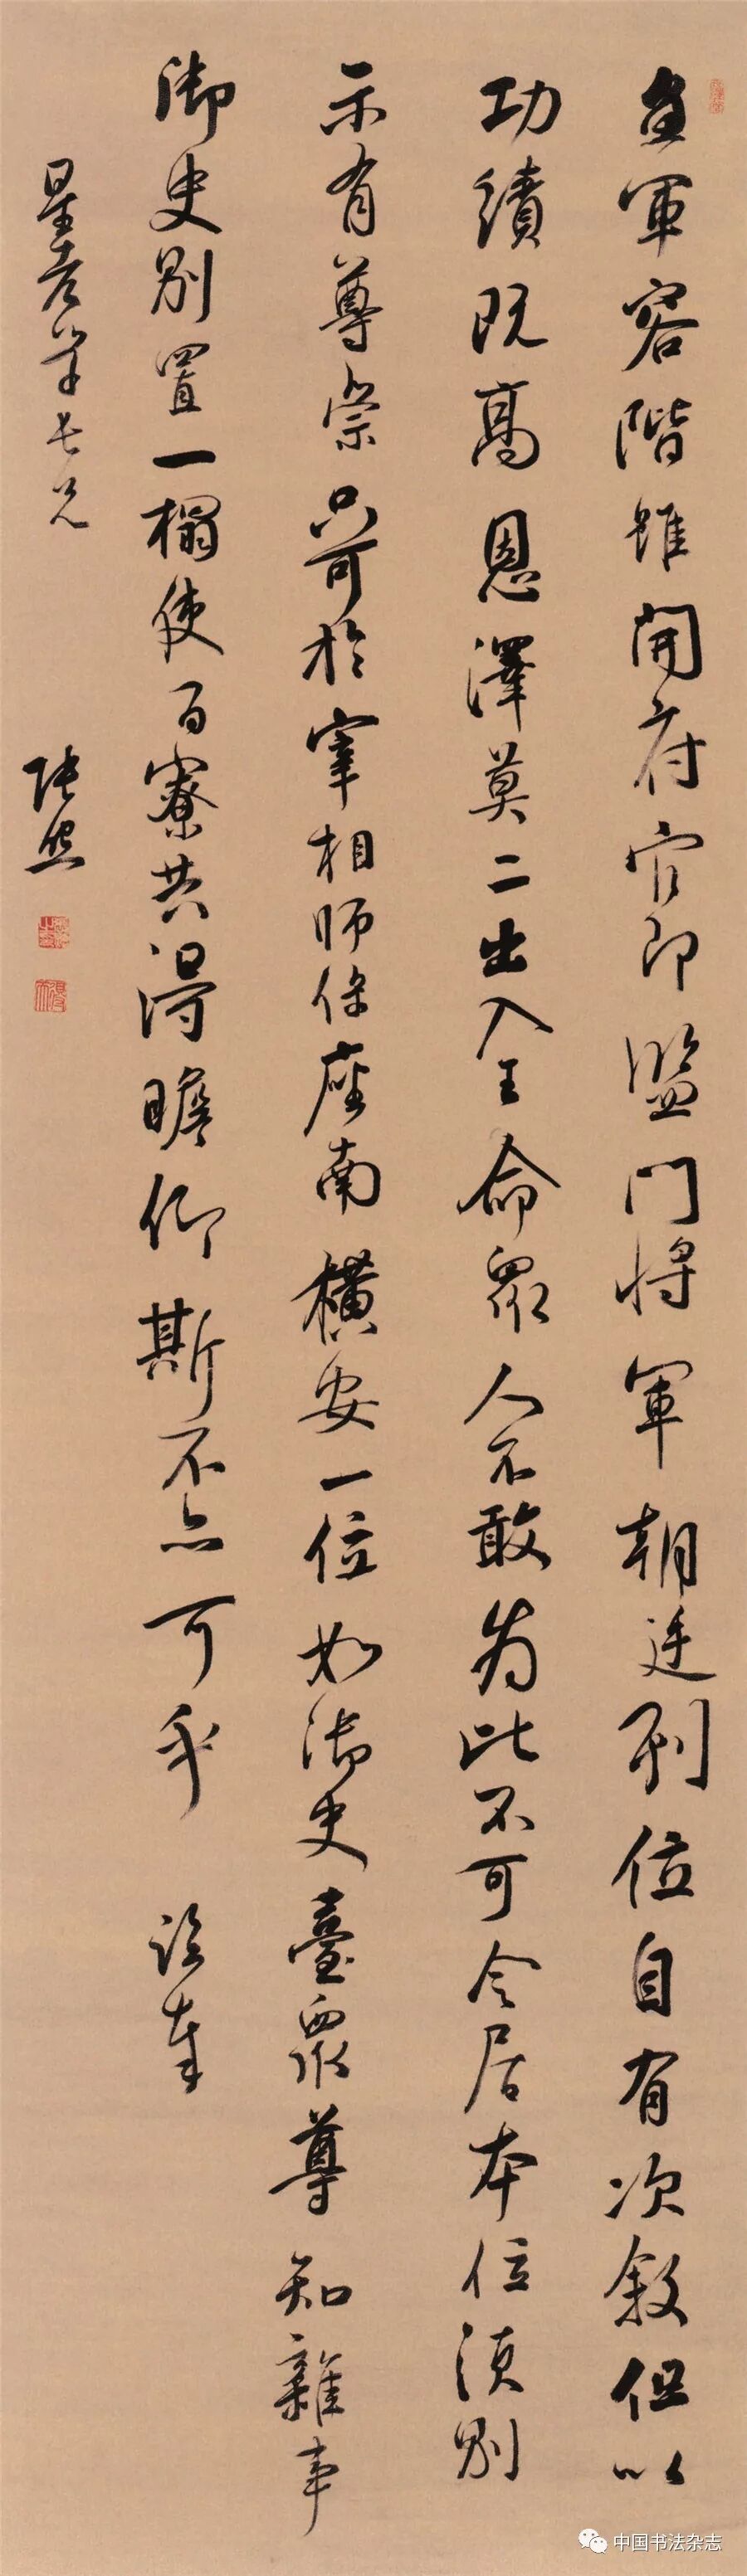 魚軍容階雖開府官即監門將軍朝廷列位自有次敘但以
功績既高恩澤莫二出入王命衆人不敢為此不可令居本位須別
示有尊崇只可於宰相師保座南橫安一位如御史臺衆尊知雜事
御史別置一榻使百寮共得瞻仰斯不亦可乎 臨奉
星老年長兄 張照
中国书法杂志